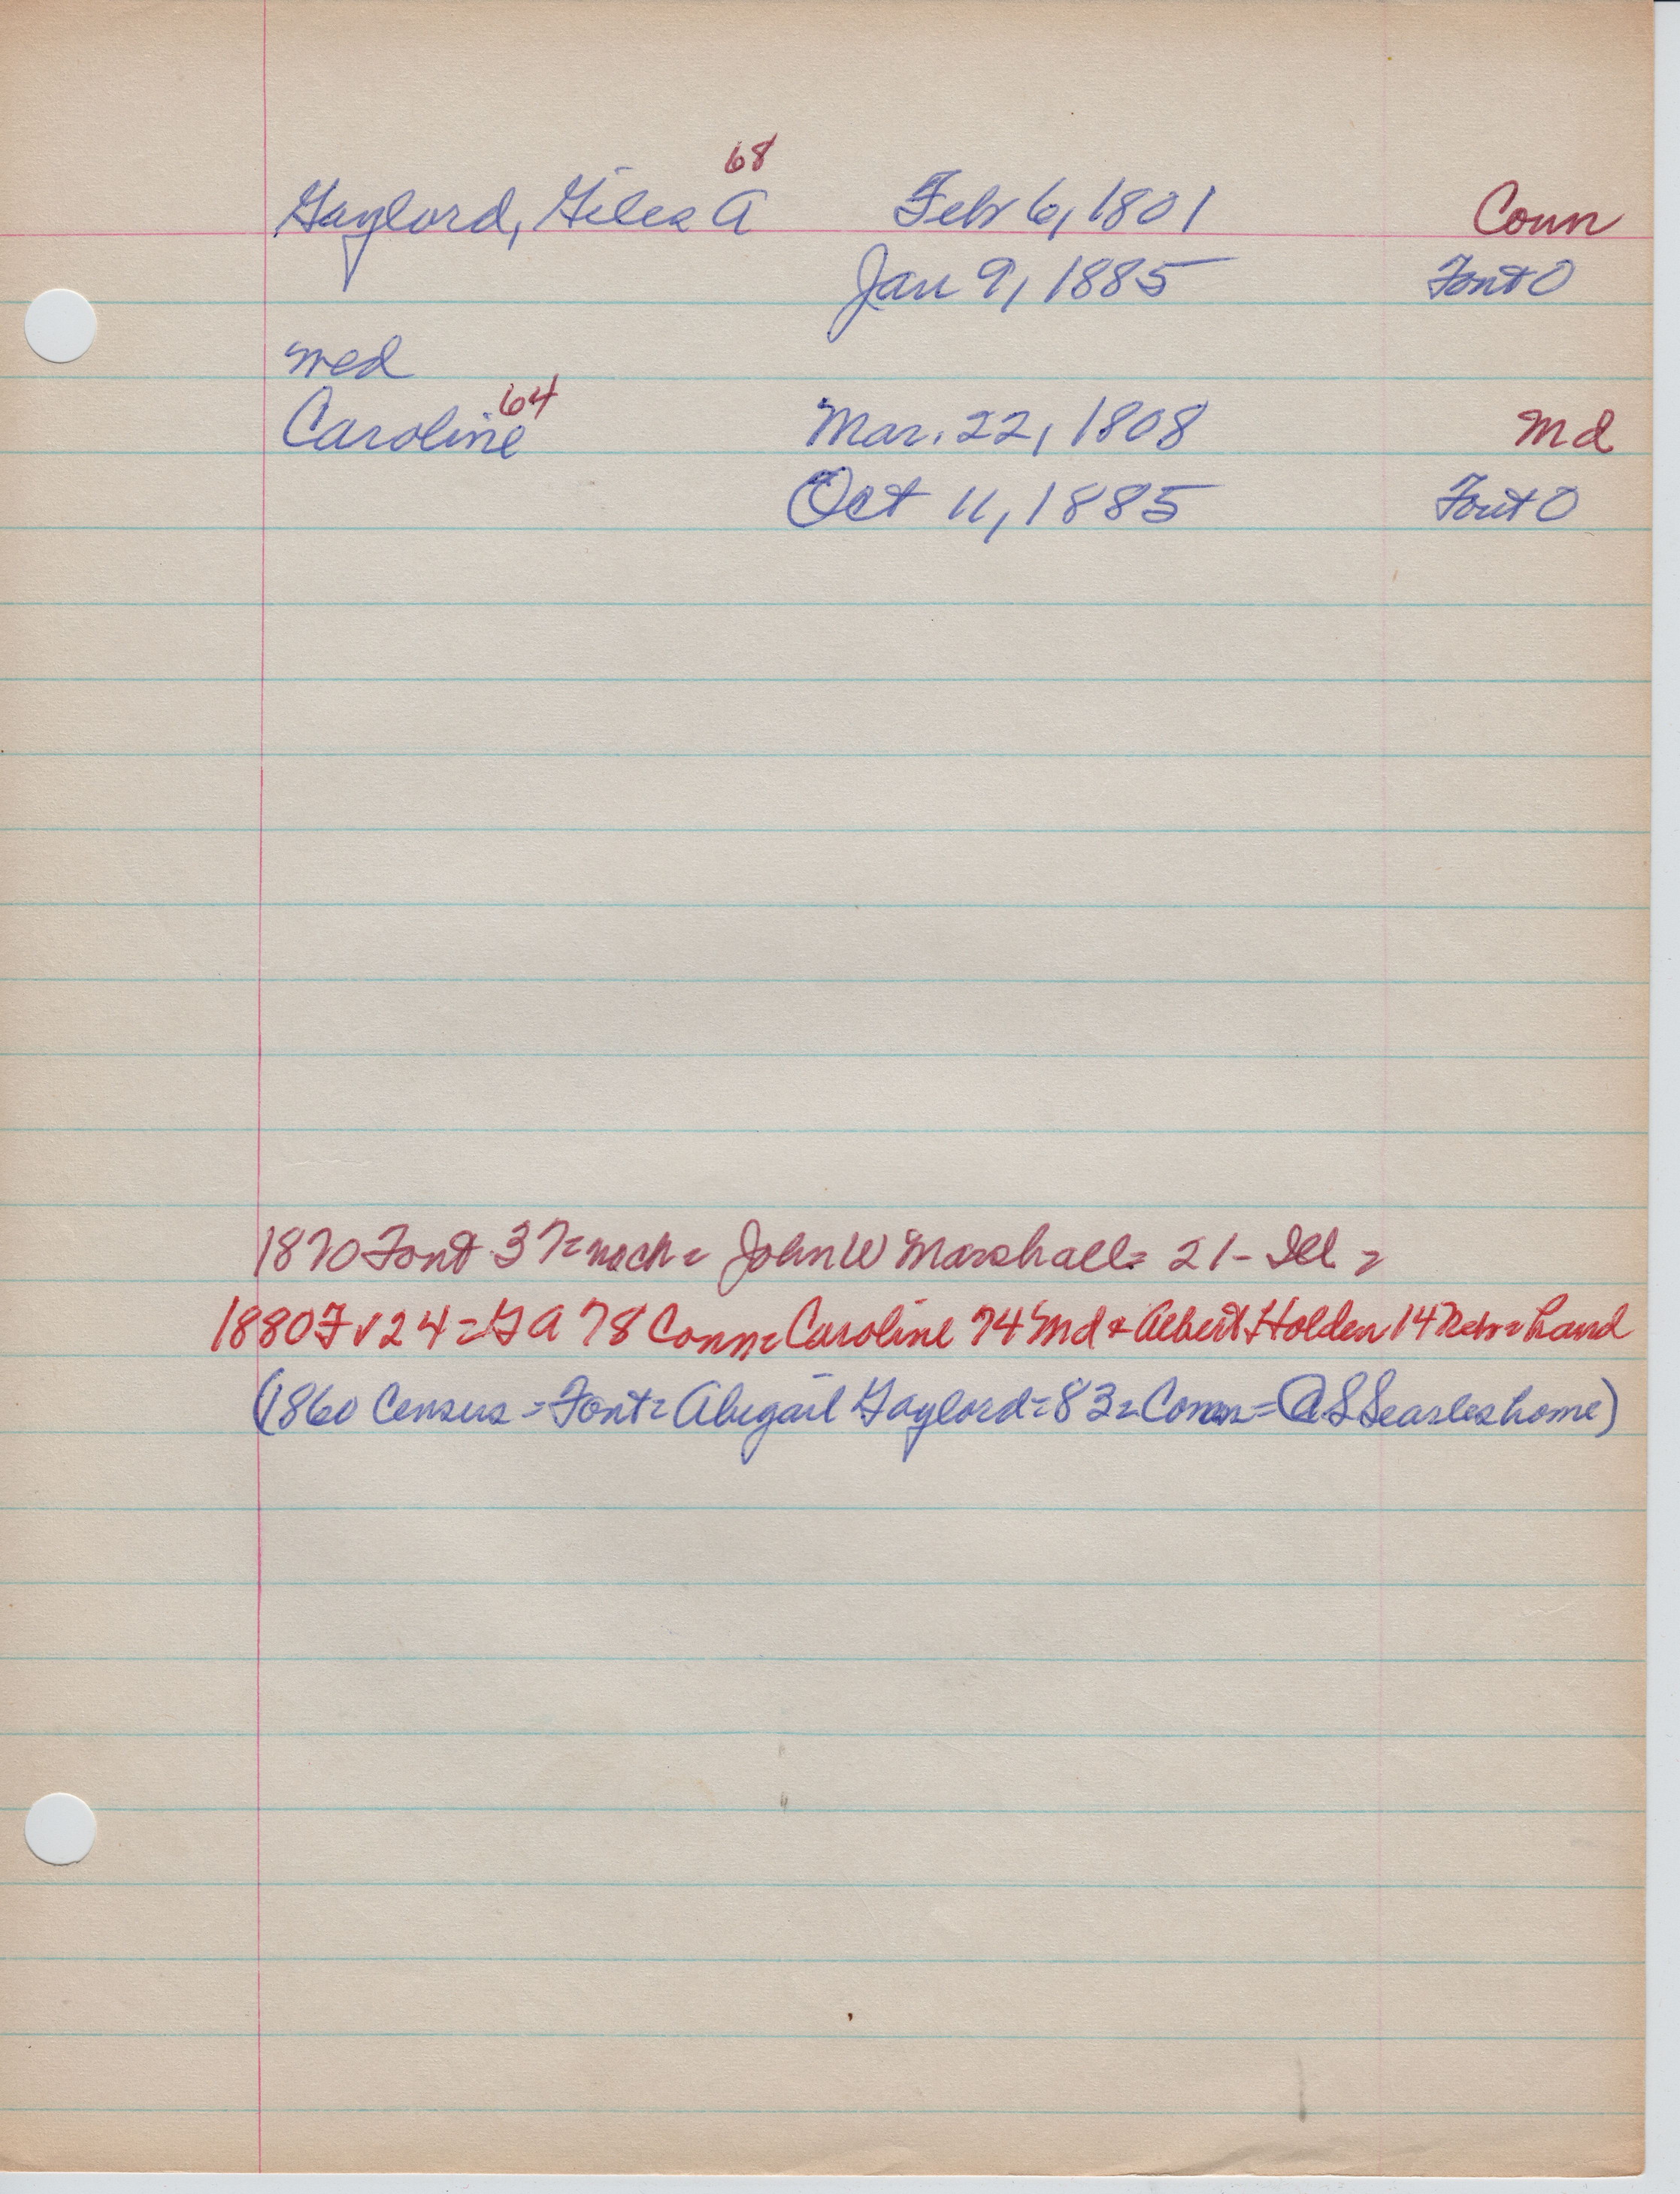 68
Gaylord, Giles A Feb 6, 1801 Conn
Jan 9, 1885 Font O
wed
64
Caroline Mar. 22, 1808 Md
Oct 11, 1885 Font O
1870 Font 37= mech= John W Marshall= 21- Ill =
1880 F v 24 = G A 78 Conn= Caroline 74 Md + Albert Holden 14 Nebr= hand
(1860 Census = Font= Abigail Gaylord= 83= Conn= @ S Searles home)